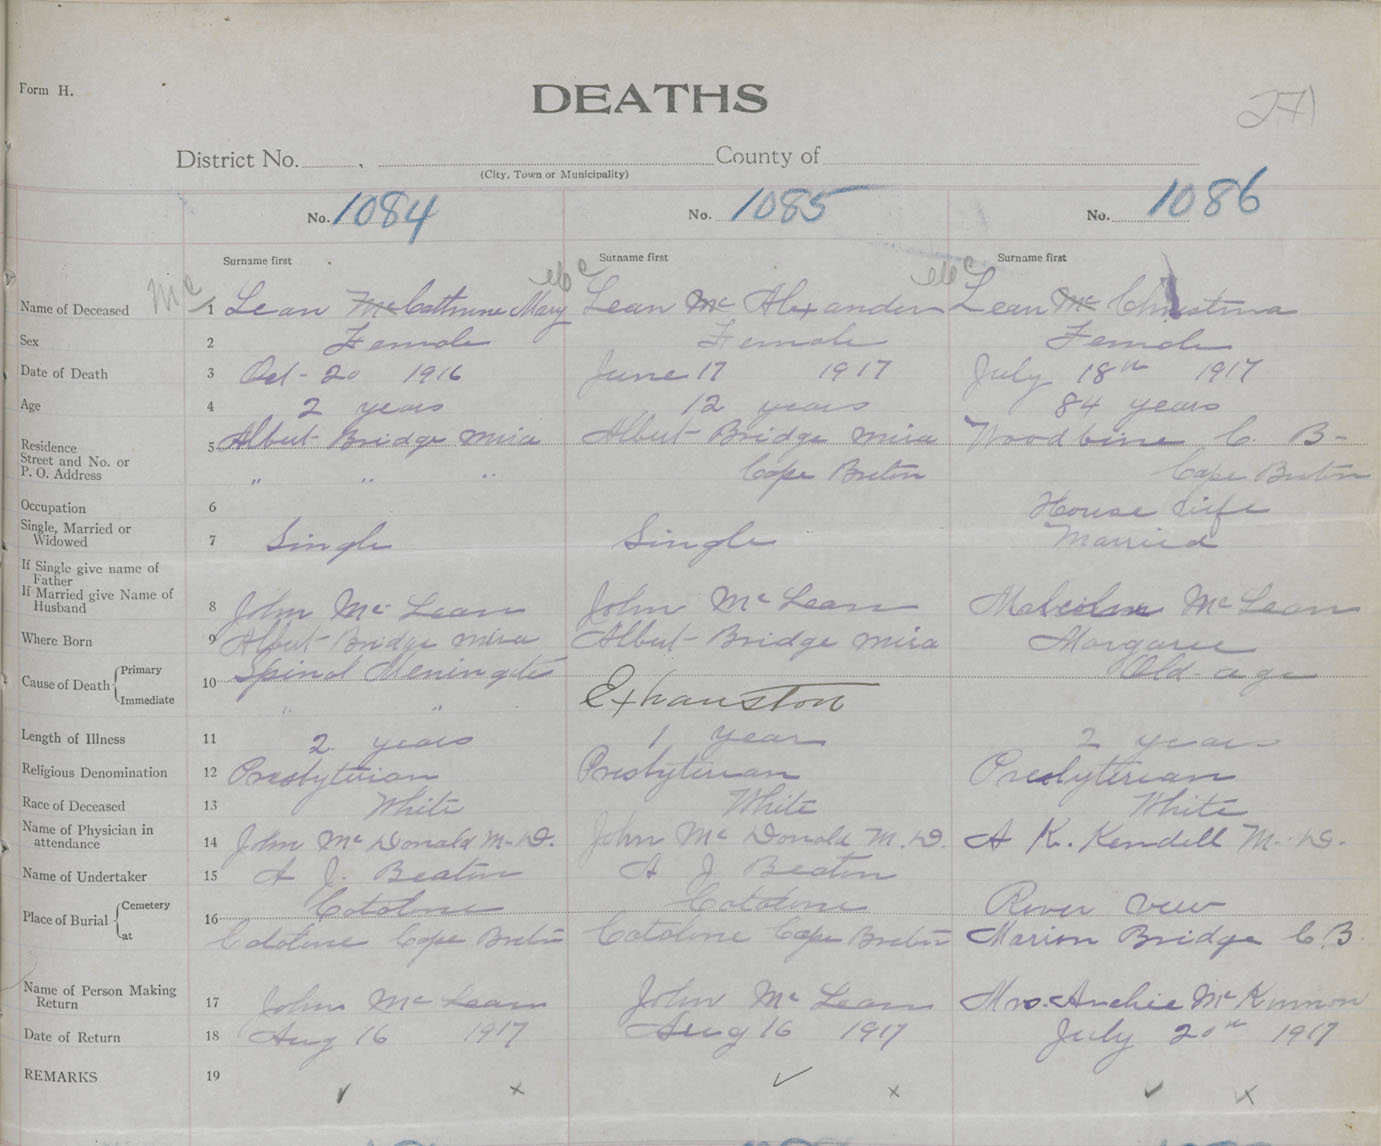 Form H.
DEATHS
271
District No. , County of
(City, Town or Municipality)
No. 1084 No. 1085 No. 1086
Surname first Surname first Surname first
Mc Mc Mc
Name of Deceased 1 Lean Mc Cathrine Mary Lean Mc Alexander Lean Mc Christina
Sex 2 Female Female Female
Date of Death 3 Oct - 20 1916 June 17 1917 July 18th 1917
Age 4 2 years 12 years 84 years
Residence 5 Albert Bridge Mira Albert Bridge Mira Woodbine C. B-
Street and No. or
P. O. Address " " " Cape Breton Cape Breton
Occupation 6 House wife
Single, Married or
Widowed 7 Single Single Married
If Single give name of
Father
If Married give Name of
Husband 8 John Mc Lean John Mc Lean Malcolm Mc Lean
Where Born 9 Albert Bridge Mira Albert Bridge Mira Margaree
Cause of Death { Primary 10 Spinal Meningite Old-age
Immediate " " Exhauston
Length of Illness 11 2 years 1 year 2 years
Religious Denomination 12 Presbyterian Presbyterian Presbyterian
Race of Deceased 13 White White White
Name of Physician in
attendance 14 John Mc Donald M.D. John Mc Donald M.D. A K. Kendell M.D.
Name of Undertaker 15 A J. Beaton A J Beaton
Place of Burial { Cemetery 16 Catalone Catalone River View
at Catalone Cape Breton Catalone Cape Breton Marion Bridge C.B.
Name of Person Making
Return 17 John Mc Lean John Mc Lean Mrs. Archie Mc Kinnon
Date of Return 18 Aug 16 1917 Aug 16 1917 July 20th 1917
REMARKS 19